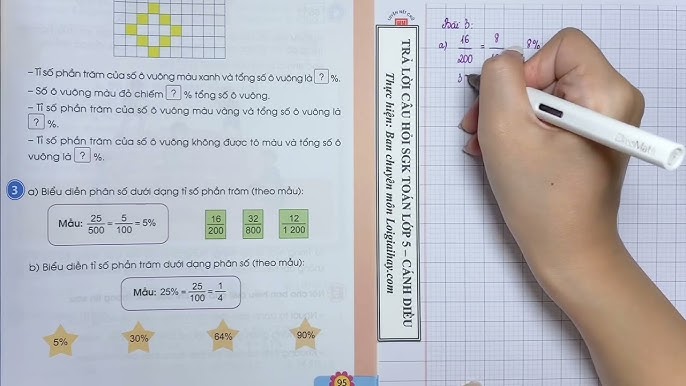 – Tỉ số phần trăm của số ô vuông màu xanh và tổng số ô vuông là ? %.
– Số ô vuông màu đỏ chiếm ? % tổng số ô vuông.
– Tỉ số phần trăm của số ô vuông màu vàng và tổng số ô vuông là
? %.
– Tỉ số phần trăm của số ô vuông không được tô màu và tổng số ô
vuông là ? %.
3 a) Biểu diễn phân số dưới dạng tỉ số phần trăm (theo mẫu):
Mẫu: 25/500 = 5/100 = 5%
16/200 32/800 12/1 200
b) Biểu diễn tỉ số phần trăm dưới dạng phân số (theo mẫu):
Mẫu: 25% = 25/100 = 1/4
5% 30% 64% 90%
95
TRẢ LỜI CÂU HỎI SGK TOÁN LỚP 5 – CÁNH DIỀU
Thực hiện: Ban chuyên môn Loigiaihay.com
Bài 3:
a) 16/200 = 8 8%
3